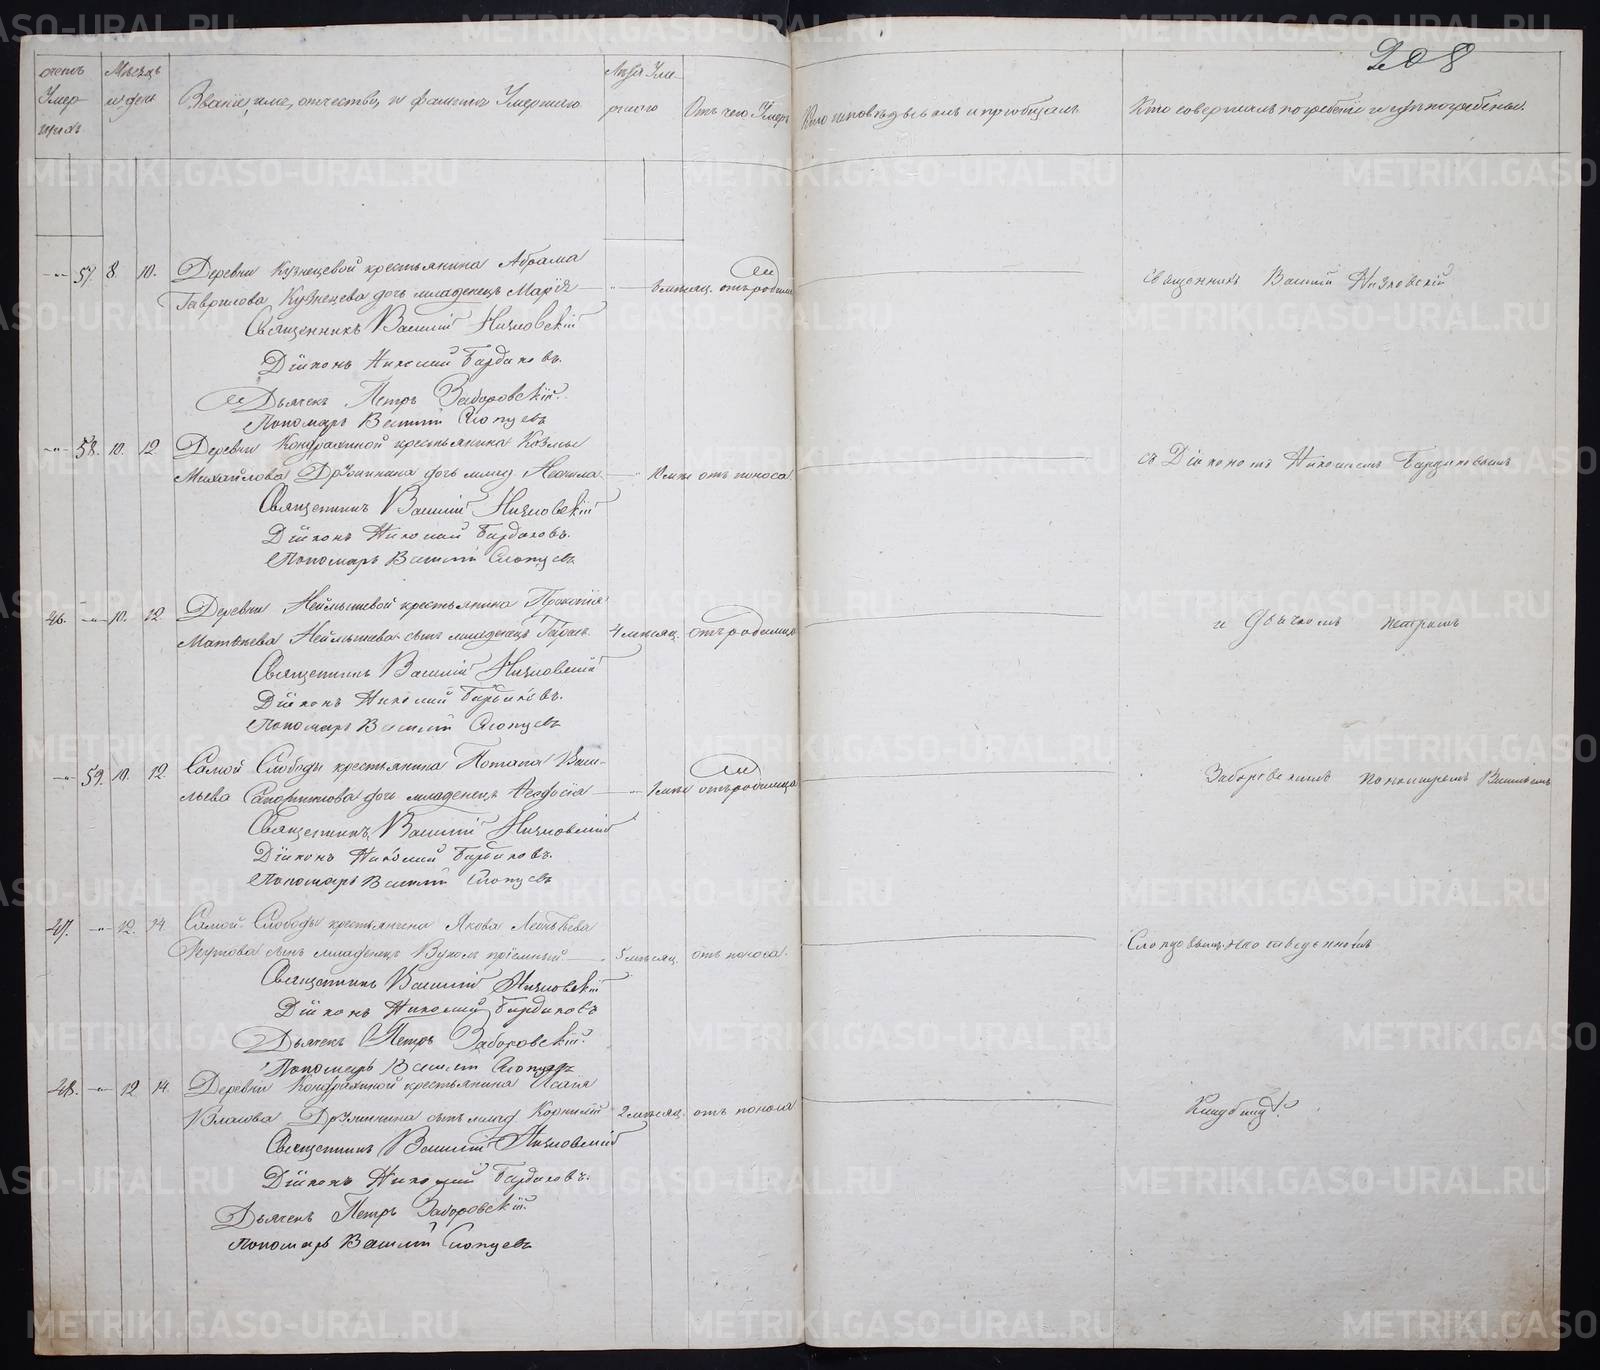 208
счетъ Умер шихъ
Мѣсяцъ и день
Званіе, имя, отчество, и фамилія Умершаго
Лѣта Умершаго
Отъ чего Умеръ
Кто исповѣдывалъ и пріобщалъ
Кто совершалъ погребеніе и гдѣ погребены.
57. 8. 10. Деревни Кузнецовой крестьянина Абрама
Гаврилова Кузнецова дочь младенецъ Марія месяц. отъ родимца
Священникъ Василій Низковскій
Діаконъ Николай Бардаковъ.
Дьячекъ Петръ Заборовскій.
Пономарь Василій Слопцовъ
Священникъ Василій Низковскій
58. 10. 12 Деревни Кондрахиной крестьянина Козмы
Михайлова Дружинина дочь млад отъ поноса.
Священникъ Василій Низковскій
Діаконъ Николай Бардаковъ.
Пономарь Василій Слопцовъ
съ Діакономъ Николаемъ Бардаковымъ
46. 10. 12 Деревни крестьянина Прокопія
Матвѣева сынъ младенецъ 4 месяц. отъ родимца
Священникъ Василій Низковскій
Діаконъ Николай Бардаковъ.
Пономарь Василій Слопцовъ
и Дьячкомъ Петромъ
59. 10. 12. Самой Слободы крестьянина Потапа Васи-
льева дочь младенецъ Феодосія отъ родимца
Священникъ Василій Низковскій
Діаконъ Николай Бардаковъ.
Пономарь Василій Слопцовъ
Заборовскимъ пономаремъ Василіемъ
47. 12. 14. Самой Слободы крестьянина Якова Леонтьева
сынъ младенецъ Вуколъ пріемный 5 месяц. отъ поноса.
Священникъ Василій Низковскій
Діаконъ Николай Бардаковъ
Дьячекъ Петръ Заборовскій.
Пономарь Василій Слопцовъ
Слопцовымъ на отведенномъ
48. 12 14. Деревни Кондрахиной крестьянина Исаія
Власова Дружинина сынъ млад Корнилій 2 месяц. отъ поноса
Священникъ Василій Низковскій
Діаконъ Николай Бардаковъ.
Дьячекъ Петръ Заборовскій.
Пономарь Василій Слопцовъ
Кладбищѣ.
METRIKI.GASO-URAL.RU